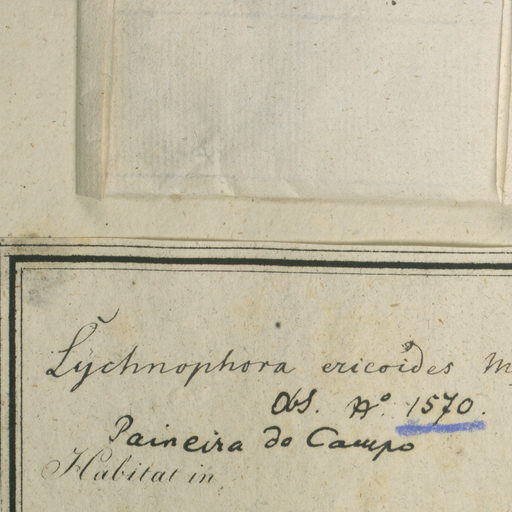 Lychnophora ericoides M
Obs. No. 1570.
Paineira do Campo
Habitat in